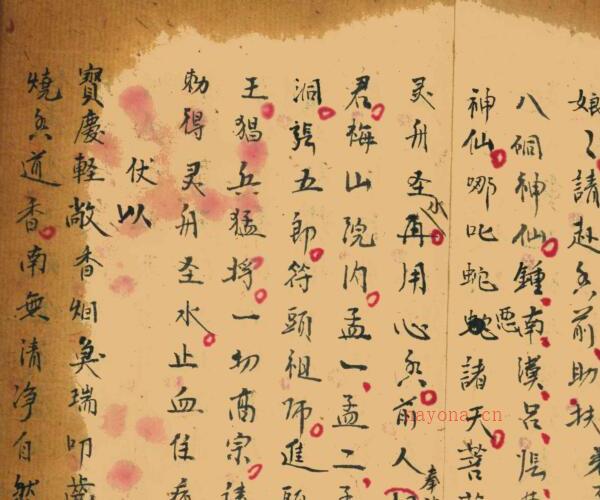 娘〻請赴香前助扶弟
八硐神仙鍾南漢呂恶
神仙哪叱蛇諸天菩
灵舟圣水再用心香前人奉
君梅山院内孟一孟二孟
洞張五郎符頭祖师進
王猖兵猛将一切高宗
勅得灵舟圣水止血住
伏以
寶慶軽敞香烟奠瑞叩齒
燒香道香南無清净自然
nayona.cn